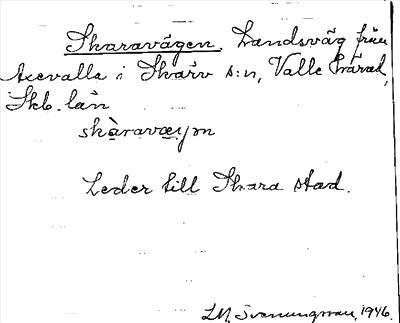 Skaravägen. Landsväg från
Axevalla i Skärv s:n, Valle härad,
Skb. län
skàravæyɱ
Leder till Skara stad.
LM Svenungsson, 1946.